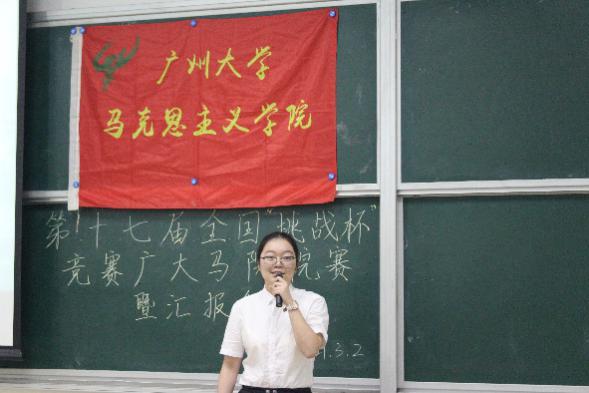 广州大学
马克思主义学院
第十七届全国"挑战杯"
竞赛广大马院院赛
暨汇报
.3.2